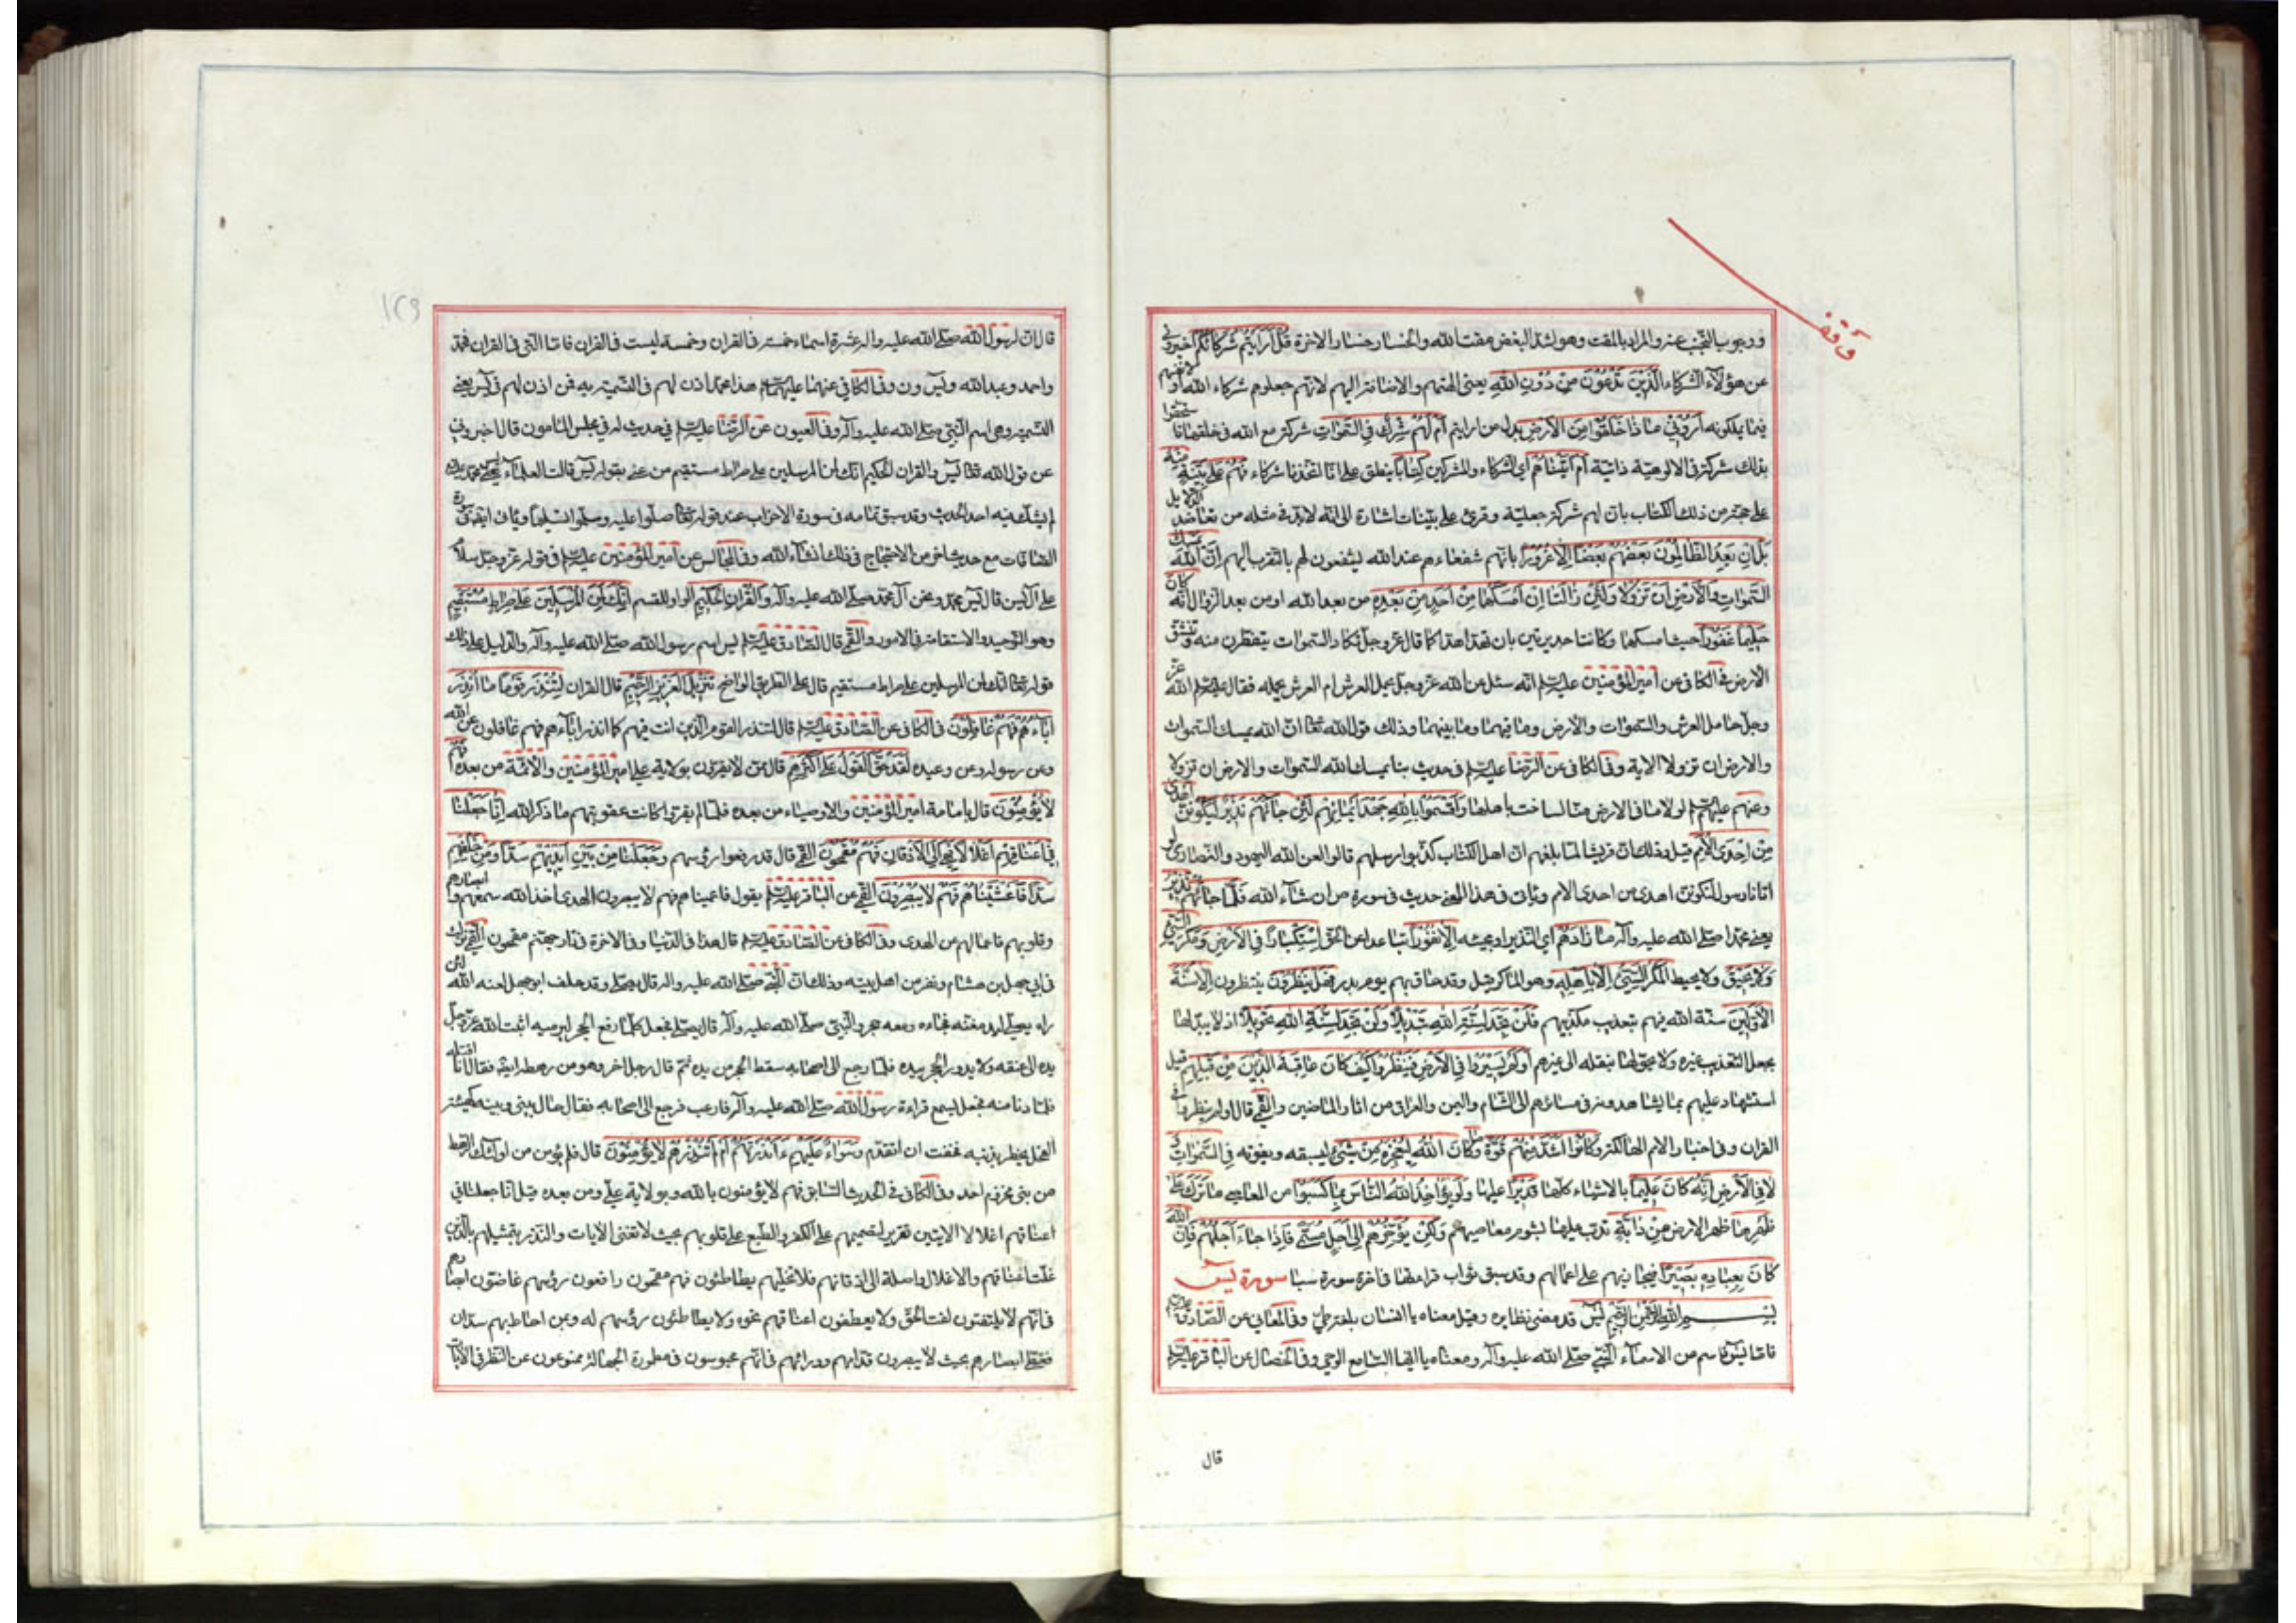 وقف
ووجوب التجنب عنه والمراد بالمقت وهو اشد البغض مقت الله والخسار خسار الاخرة قُلْ اَرَاَيْتُمْ شُرَكَاۤءَكُمُ اخبرونى
عن هؤلآء الشركاء الَّذِينَ تَدْعُونَ مِنْ دُونِ اللهِ يعنى الهتهم والاضافة اليهم لانهم جعلوهم شركاء الله او لانفسهم
فيما يملكونه اَرُونِي مَاذَا خَلَقُوا مِنَ الْاَرْضِ بدل من ارايتم اَمْ لَهُمْ شِرْكٌ فِي السَّمٰوَاتِ شركة مع الله فى خلقها فاستحقوا
بذلك شركة فى الالوهية ذاتية اَمْ اٰتَيْنَاهُمْ اى الشركاء والمشركين كِتَابًا ينطق على انا اتخذنا شركاء فَهُمْ عَلٰى بَيِّنَةٍ مِنْهُ
على حجة من ذلك الكتاب بان لهم شركة جعلية وقرئ على بينات اشارة الى انه لابد فى مثله من تعاضد الدلايل
بَلْ اِنْ يَعِدُ الظَّالِمُونَ بَعْضُهُمْ بَعْضًا اِلَّا غُرُورًا بانهم شفعاءهم عند الله يشفعون لهم بالتقرب اليهم اِنَّ اللهَ يُمْسِكُ
السَّمٰوَاتِ وَالْاَرْضَ اَنْ تَزُولَا وَلَئِنْ زَالَتَا اِنْ اَمْسَكَهُمَا مِنْ اَحَدٍ مِنْ بَعْدِهِ من بعد الله او من بعد الزوال اِنَّهُ كَانَ
حَلِيمًا غَفُورًا حيث امسكهما وكانتا جديرتين بان تهدا هدا كما قال عز وجل تكاد السموات يتفطرن منه وتنشق
الارض فى الكافى عن امير المؤمنين عليه السلم انه سئل عن الله عز وجل يحمل العرش ام العرش يحمله فقال عليه السلم الله عز
وجل حامل العرش والسموات والارض وما فيهما وما بينهما وذلك قول الله تعا ان الله يمسك السموات
والارض ان تزولا الاية وفى الكافى عن الرضا عليه السلم فى حديث بنا يمسك الله السموات والارض ان تزولا
وعنهم عليهم السلم لولا ما فى الارض منا لساخت باهلها وَاَقْسَمُوا بِاللهِ جَهْدَ اَيْمَانِهِمْ لَئِنْ جَاۤءَهُمْ نَذِيرٌ لَيَكُونُنَّ اَهْدٰى
مِنْ اِحْدَى الْاُمَمِ قيل وذلك ان قريشا لما بلغهم ان اهل الكتاب كذبوا رسلهم قالوا لعن الله اليهود والنصارى لو
اتانا رسول لنكونن اهدى من احدى الامم ويأتى فى هذا المعنى حديث فى سورة ص ان شاء الله فَلَمَّا جَاۤءَهُمْ نَذِيرٌ
يعنى محمدا صلى الله عليه وآله مَا زَادَهُمْ اى النذير او مجيئه اِلَّا نُفُورًا تباعدا عن الحق اِسْتِكْبَارًا فِي الْاَرْضِ وَمَكْرَ السَّيِّئِ
وَلَا يَحِيقُ ولا يحيط الْمَكْرُ السَّيِّئُ اِلَّا بِاَهْلِهِ وهو الماكر قيل وقد حاق بهم يوم بدر فَهَلْ يَنْظُرُونَ ينتظرون اِلَّا سُنَّةَ
الْاَوَّلِينَ سنة الله فيهم بتعذيب مكذبيهم فَلَنْ تَجِدَ لِسُنَّةِ اللهِ تَبْدِيلًا وَلَنْ تَجِدَ لِسُنَّةِ اللهِ تَحْوِيلًا اذ لا يبدلها
بجعل التعذيب غيره ولا يحولها بنقله الى غيرهم اَوَلَمْ يَسِيرُوا فِي الْاَرْضِ فَيَنْظُرُوا كَيْفَ كَانَ عَاقِبَةُ الَّذِينَ مِنْ قَبْلِهِمْ قيل
استشهاد عليهم بما يشاهدونه فى مسائرهم الى الشام واليمن والعراق من اثار الماضين والقمى قال اولم ينظروا فى
القران وفى اخبار الامم الهالكة وَكَانُوا اَشَدَّ مِنْهُمْ قُوَّةً وَمَا كَانَ اللهُ لِيُعْجِزَهُ مِنْ شَيْءٍ ليسبقه ويفوته فِي السَّمٰوَاتِ وَ
لَا فِي الْاَرْضِ اِنَّهُ كَانَ عَلِيمًا بالاشياء كلها قَدِيرًا عليها وَلَوْ يُؤَاخِذُ اللهُ النَّاسَ بِمَا كَسَبُوا من المعاصى مَا تَرَكَ عَلٰى
ظَهْرِهَا ظهر الارض مِنْ دَابَّةٍ تدب عليها بشوم معاصيهم وَلٰكِنْ يُؤَخِّرُهُمْ اِلٰى اَجَلٍ مُسَمًّى فَاِذَا جَاءَ اَجَلُهُمْ فَاِنَّ اللهَ
كَانَ بِعِبَادِهِ بَصِيرًا فيجازيهم على اعمالهم وقد سبق ثواب قراءتها فى اخر سورة سبا سورة يس
بِسْمِ اللهِ الرَّحْمٰنِ الرَّحِيمِ يس قد مضى نظايره وقيل معناه يا انسان بلغة طى وفى المعانى عن الصادق عليه السلم
فاما يس فاسم من الاسماء النبى صلى الله عليه وآله ومعناه يا ايها السامع الوحى وفى الخصال عن الباقر عليه السلم
قال
١٢٩
قال ان لرسول الله صلى الله عليه واله عشرة اسماء خمسة فى القران وخمسة ليست فى القران فاما التى فى القران فمحمد
واحمد وعبد الله ويس ون وفى الكافى عنهما عليهما السلم هذا محمد اذن لهم فى التسمية به فمن اذن لهم فى يس يعنى
التسمية وهى اسم النبى صلى الله عليه وآله وفى العيون عن الرضا عليه السلم فى حديث له فى مجلس المامون قال اخبرونى
عن قول الله تعا يس والقران الحكيم انك لمن المرسلين على صراط مستقيم من عنى بقوله يس قالت العلماء يس محمد
لم يشك فيه احد الحديث وقد سبق تمامه فى سورة الاحزاب عند قوله تعا صلوا عليه وسلموا تسليما ويأتى ايضا فى سورة
الصافات مع حديث اخر من الاحتجاج فى ذلك انشاء الله وفى المجالس عن امير المؤمنين عليه السلم فى قوله عز وجل سلام
على آل يس قال يس محمد ونحن آل محمد صلى الله عليه وآله وَالْقُرْاٰنِ الْحَكِيمِ الواو للقسم اِنَّكَ لَمِنَ الْمُرْسَلِينَ عَلٰى صِرَاطٍ مُسْتَقِيمٍ
وهو التوحيد والاستقامة فى الامور والقمى قال الصادق عليه السلم يس اسم رسول الله صلى الله عليه وآله والدليل على ذلك
قوله تعا انك لمن المرسلين على صراط مستقيم قال على الطريق الواضح تَنْزِيلَ الْعَزِيزِ الرَّحِيمِ قال القران لِتُنْذِرَ قَوْمًا مَا اُنْذِرَ
اٰبَاۤؤُهُمْ فَهُمْ غَافِلُونَ فى الكافى عن الصادق عليه السلم قال لتنذر القوم الذين انت فيهم كما انذر اباءهم فهم غافلون عن الله
وعن رسوله وعن وعيده لَقَدْ حَقَّ الْقَوْلُ عَلٰى اَكْثَرِهِمْ قال ممن لا يقرون بولاية على امير المؤمنين والائمة من بعده فَهُمْ
لَا يُؤْمِنُونَ قال بامامة امير المؤمنين والاوصياء من بعده فلما لم يقروا كانت عقوبتهم ما ذكر الله اِنَّا جَعَلْنَا
فِي اَعْنَاقِهِمْ اَغْلَالًا فَهِيَ اِلَى الْاَذْقَانِ فَهُمْ مُقْمَحُونَ القمى قال قد رفعوا رؤسهم وَجَعَلْنَا مِنْ بَيْنِ اَيْدِيهِمْ سَدًّا وَمِنْ خَلْفِهِمْ
سَدًّا فَاَغْشَيْنَاهُمْ فَهُمْ لَا يُبْصِرُونَ القمى عن الباقر عليه السلم يقول فاعميناهم فهم لا يبصرون الهدى اخذ الله سمعهم وابصارهم
وقلوبهم فاعمالهم عن الهدى وفى الكافى عن الصادق عليه السلم قال هذا فى الدنيا وفى الاخرة فى نار جهنم مقمحون القمى نزلت
فى ابى جهل بن هشام ونفر من اهل بيته وذلك ان النبى صلى الله عليه واله قال يصلى وقد حلف ابو جهل لعنه الله لئن
راه يصلى ليدمغنه فجاءه ومعه حجر والنبى صلى الله عليه وآله قال يصلى فجعل كلما رفع الحجر ليرميه اثبت الله عز وجل
يده الى عنقه ولا يدور الحجر بيده فلما رجع الى اصحابه سقط الحجر من يده ثم قال رجل اخر وهو من رهطه ايضا فقال انا اقتله
فلما دنا منه فجعل يسمع قراءة رسول الله صلى الله عليه وآله فارعب فرجع الى اصحابه فقال حال بينى وبينه كهيئة
الفحل يخطر بذنبه فخفت ان اتقدم وَسَوَاۤءٌ عَلَيْهِمْ ءَاَنْذَرْتَهُمْ اَمْ لَمْ تُنْذِرْهُمْ لَا يُؤْمِنُونَ قال فلم يؤمن من اولئك الرهط
من بنى مخزوم احد وفى الكافى فى الحديث السابق فهم لا يؤمنون بالله وبولاية على ومن بعده قيل انا جعلنا فى
اعناقهم اغلالا الايتين تقرير لتصميمهم على الكفر والطبع على قلوبهم بحيث لا تغنى الايات والنذر بتمثيلهم بالذين
غلت اعناقهم والاغلال واصلة الى اذقانهم فلا تخليهم يطاطئون فهم مقمحون رافعون رؤسهم غاضون ابصارهم
فانهم لا يلتفتون لفت الحق ولا يعطفون اعناقهم نحوه ولا يطاطئون رؤسهم له وبمن احاط بهم سدان
فغطى ابصارهم بحيث لا يبصرون قدامهم وورائهم فانهم محبوسون فى مطمورة الجهالة ممنوعون عن النظر فى الايات